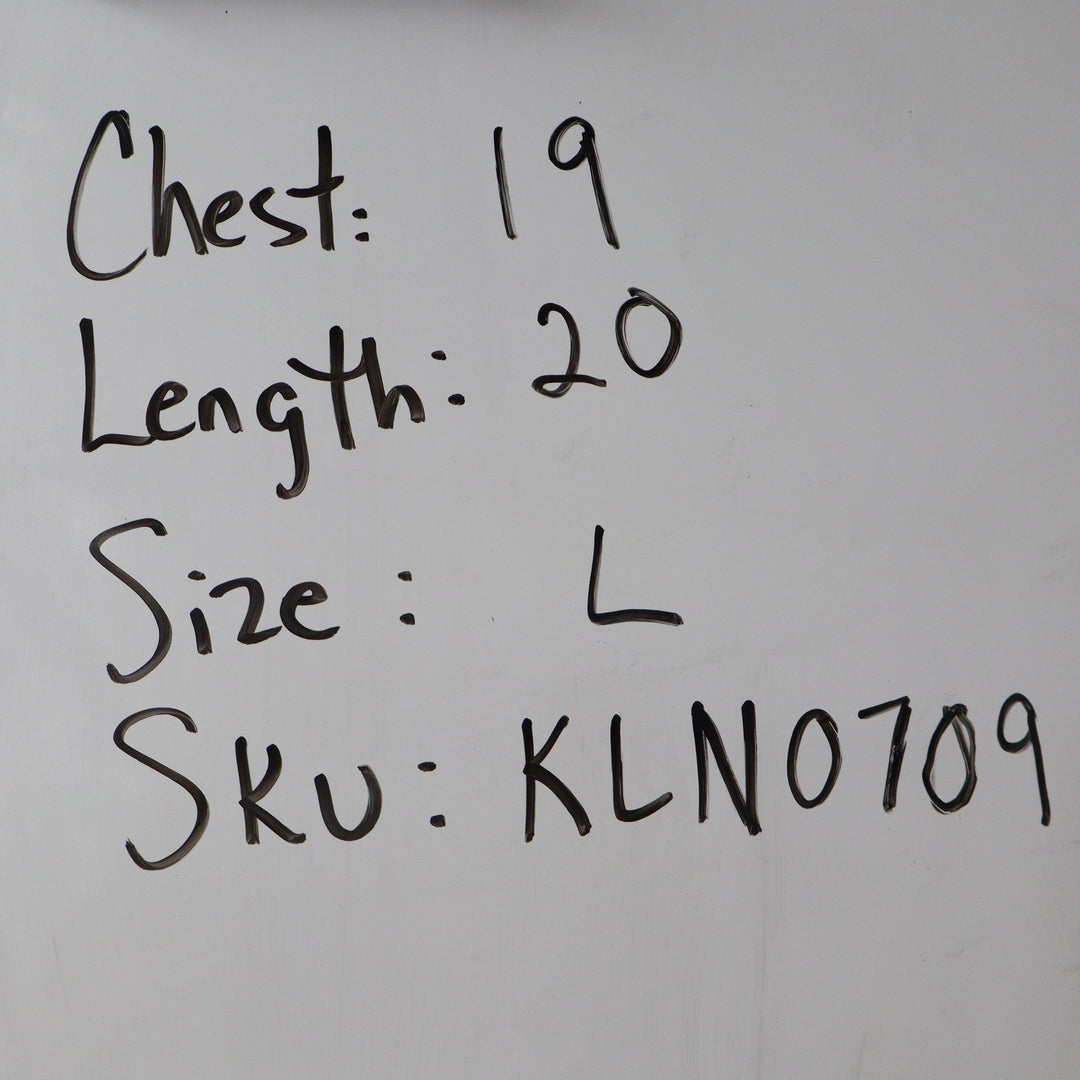 Chest: 19
Length: 20
Size: L
Sku: KLN0709